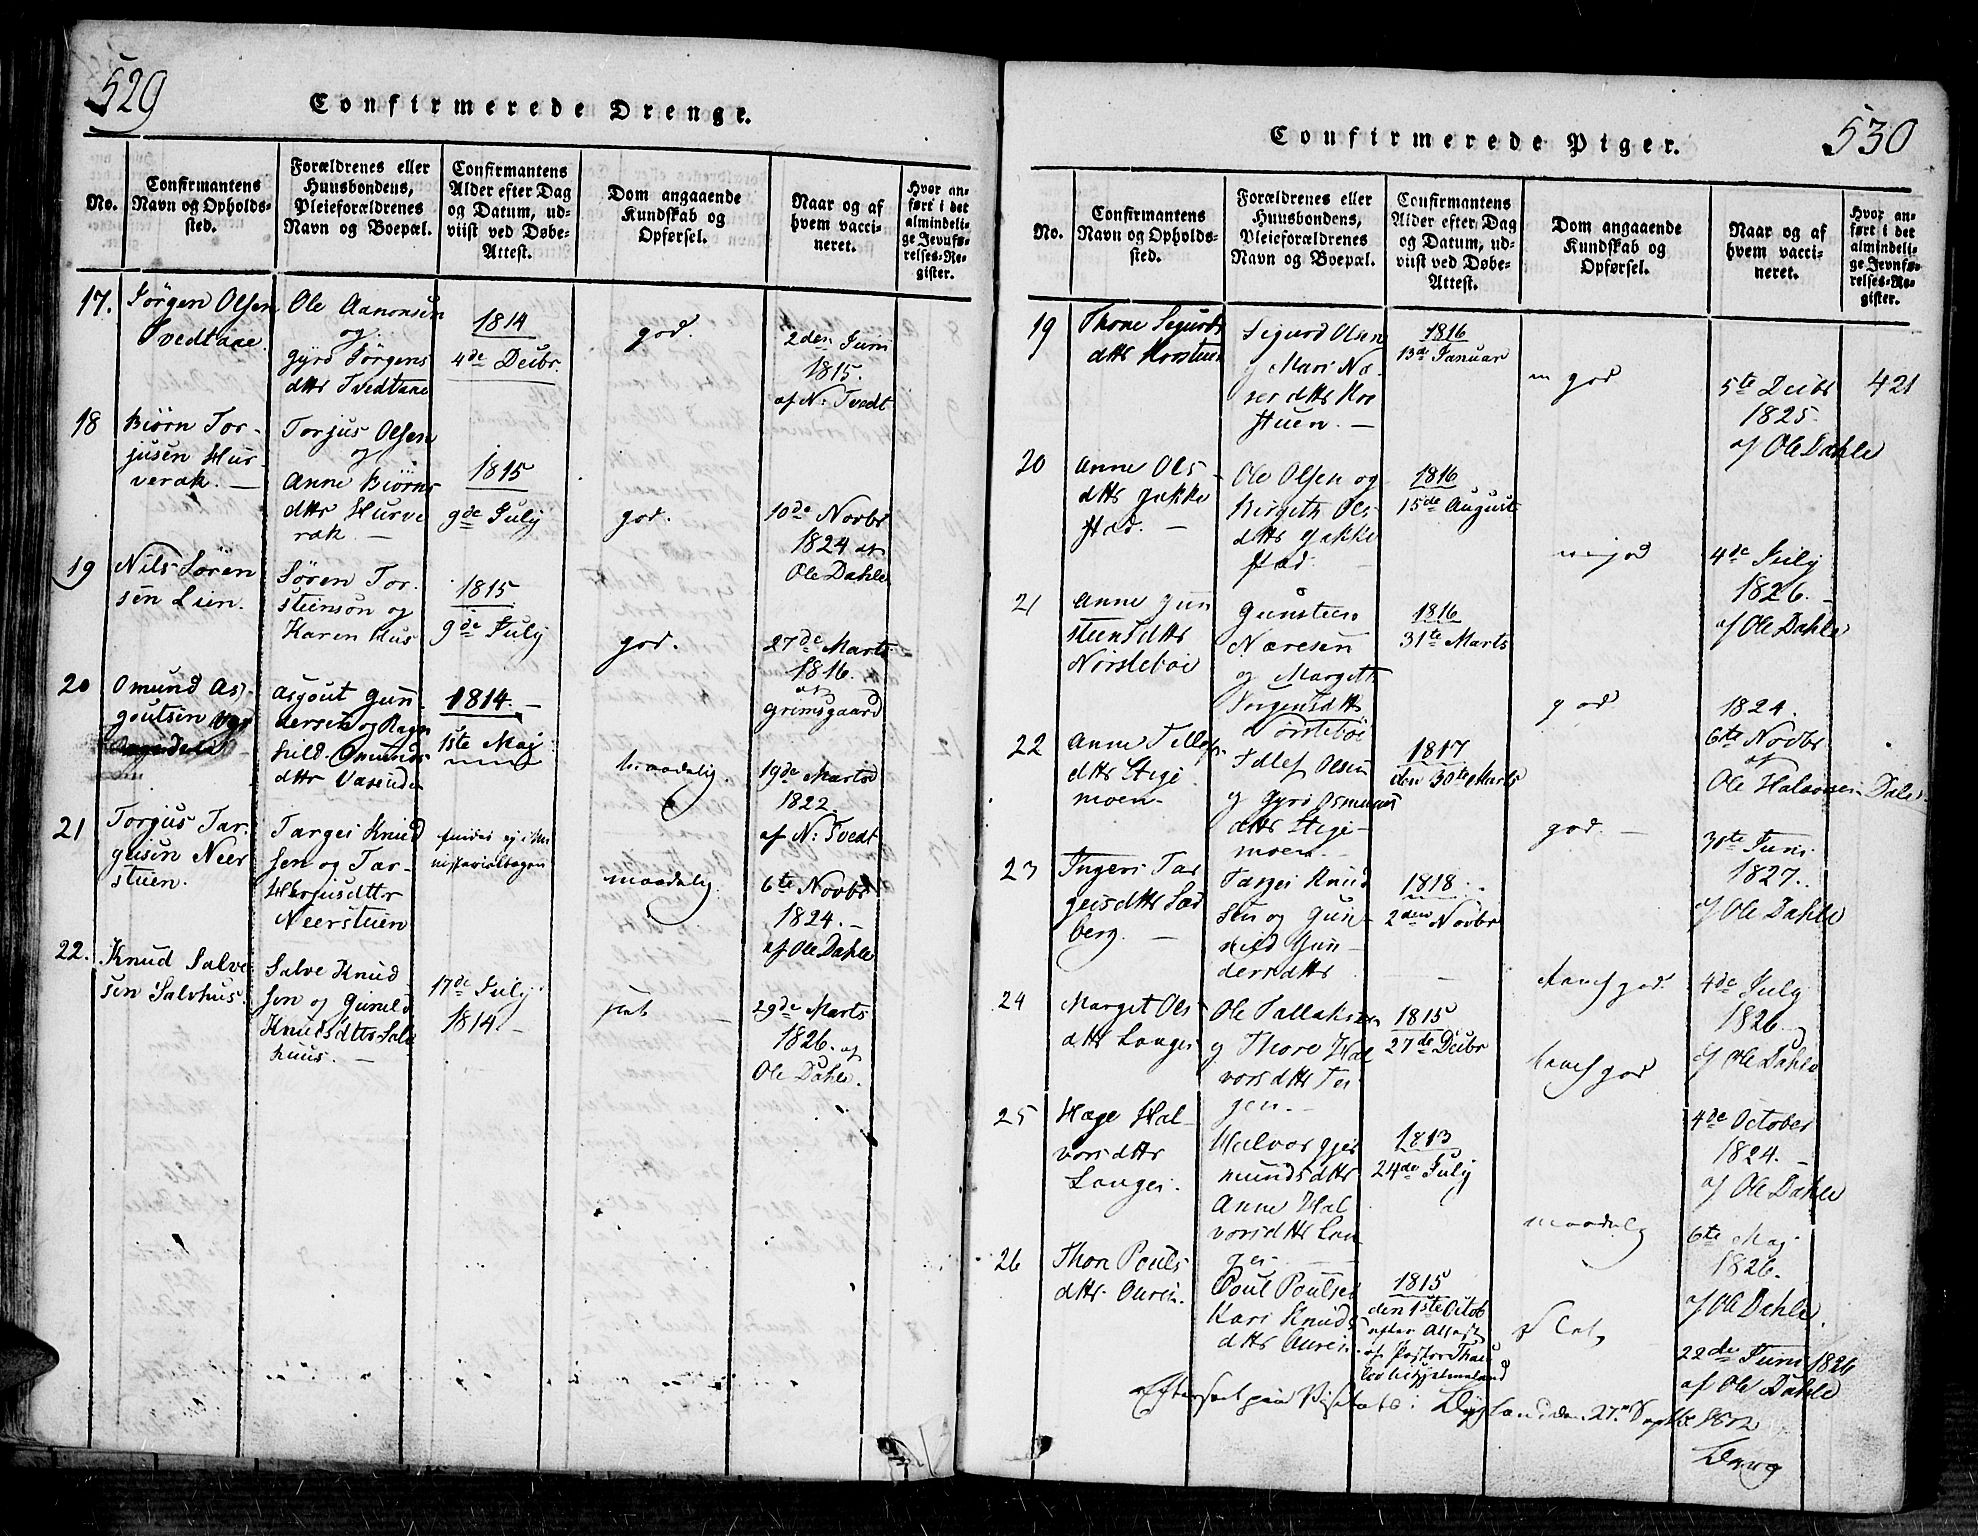 529
Confirmerede Drenge.
No.
Confirmantens
Navn og Opholds-
sted.
Forældrenes eller
Huusbondens,
Pleieforældrenes
Navn og Boepæl.
Confirmantens
Alder efter Dag
og Datum, ud-
viist ved Døbe-
Attest.
Dom angaaende
Kundskab og
Opførsel.
Naar og af
hvem vacci-
neret.
Hvor an-
ført i det
almindeli-
ge Jevnfø-
relses-Re-
gister.
17.
Jörgen Olsen
Tvedtane
Ole Aanonsen
og
Gyro Jörgens
dttr Tvedtane
1814
4de Decbr.
god.
2den Juni
1815.
af N: Tvedt
18
Biörn Tor-
jusen Hur-
verak.
Torjus Olsen
og
Anne Biörns
dttr Hurve
rak.
1815
9de July
god.
10de Novbr
1824 af
Ole Dahle
19
Nils Sören
sen Lien.
Sören Tor-
steinson og
Karen Hus
1815
9de July
god.
27de Marts
1816.
af
Grimsgaard
20
Omund As-
goutsen
Asgout Gun
dersen og Ragn
hild Omunds
dttr Vasenden
1814.
1ste Maj
maadelig.
19de Marts
1822.
af N: Tvedt
21
Torjus Tar-
geisen Neer
stuen.
Targei Knud
sen og Tar-
Herjusdttr
Neerstuen
findes ej i Mi
nisterialbogen
maadelig.
6te Novbr
1824.
af Ole Dahle
22.
Knud Salve
sen Salvhus.
Salve Knud
sen og Gunild
Knudsdttr Salv
huus.
17de July
1814.
slet
29de Marts
1826. af
Ole Dahle.
530
Confirmerede Piger.
No.
Confirmantens
Navn og Opholds-
sted.
Forældrenes eller
Huusbondens,
Pleieforældrenes
Navn og Boepæl.
Confirmantens
Alder efter Dag
og Datum, ud-
viist ved Døbe-
Attest.
Dom angaaende
Kundskab og
Opførsel.
Naar og af
hvem vacci-
neret.
Hvor an-
ført i det
almindeli-
ge Jevnfø-
relses-Re-
gister.
19
Thone Sigurds
dttr Korstuen
Sigurd Olsen
og Mari Næ-
ser dttr Kor
stuen.
1816
13de Januar
god
5te Decbr
1825.
af Ole Dahle
421
20
Anne Ols
dttr Jokke
stad.
Ole Olsen og
Birgith Ols
dttr Jokke
stad.
1816
15de August
god
4de July
1826.
af Ole Dahle
21
Anne Gun
steensdttr
Norsteböe
Gunsteen
Næresen
og Margeth
Torgersdttr
Norsteböe
1816
31te Marts
god
1824.
6te Novbr
af
Ole Halvorsen Dale
22
Anne Tellefs
dttr Stige
moen
Tellef Olsen
og Gyro Osmunds
dttr Stige
moen.
1817
den 30te Marts
god.
30te Juni
1827.
af Ole Dahle
23
Ingeri Tar
geisdttr Sæd
berg.
Targei Knud
sen og Gun-
nild Gun-
dersdttr
1818.
2den Novbr
god.
4de July
1826.
af Ole Dahle
24
Marget Ols
dttr Langei
Ole Tallaksen
og Thore Hal
vorsdttr
1815
27de Decbr
god
4de October
1824.
af Ole Dahle
25
Hæge Hal-
vorsdttr
Langei.
Halvor Gjer
mundsdttr
Anne Hal
vorsdttr Lan
gei
1813
24de July
maadelig
6te Maj
1826.
af Ole Dahle.
26
Thore Pouls
dttr Ouren.
Poul Poulsen
Kari Knuds
dttr Auren.
1815
den 1ste Octob
efter Attest
af Pastor
Slet,
22de Juni 1826
af Ole Dahle
Efterseet paa Visitats i Dyeland den 27. Septbr